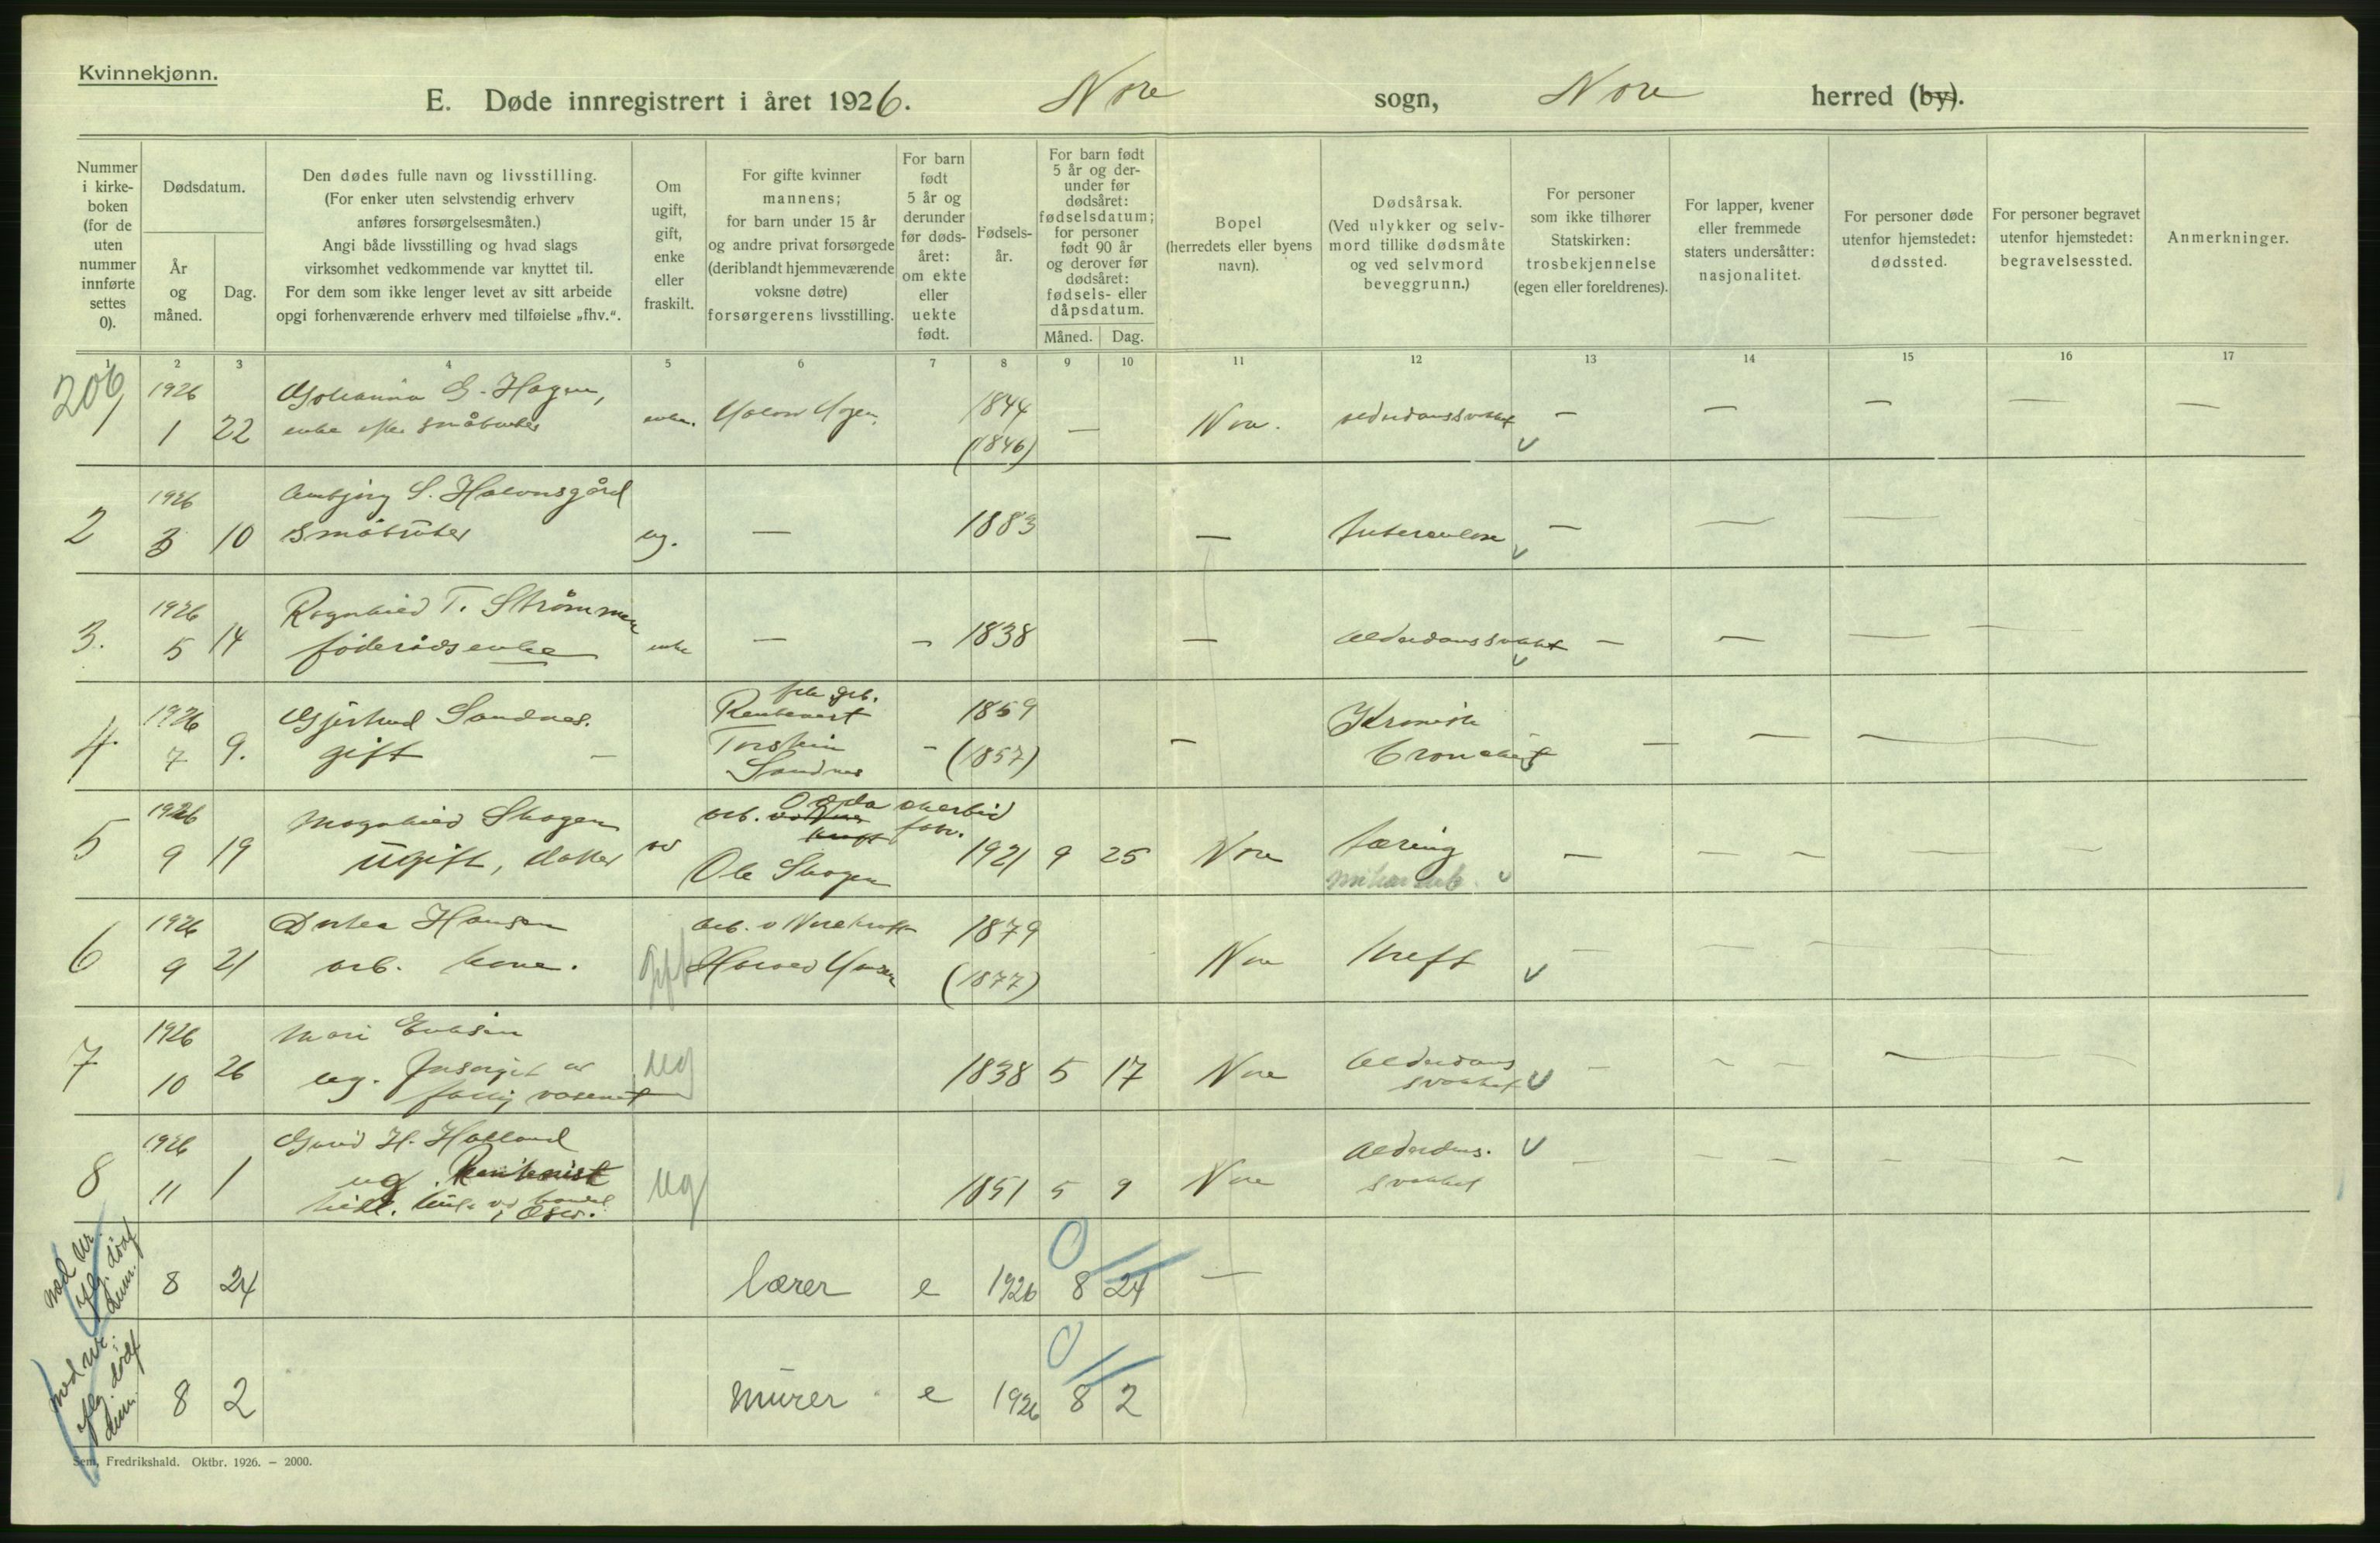 Kvinnekjønn.
E. Døde innregistrert i året 1926. Nore sogn, Nore herred (by).
Nummer i kirkeboken (for de uten nummer innførte settes 0).
Dødsdatum.
År og måned.
Dag.
Den dødes fulle navn og livsstilling.
(For enker uten selvstendig erhverv
anføres forsørgelsesmåten.)
Angi både livsstilling og hvad slags
virksomhet vedkommende var knyttet til.
For dem som ikke lenger levet av sitt arbeide
opgi forhenværende erhverv med tilføielse „fhv.“.
Om ugift, gift, enke eller fraskilt.
For gifte kvinner
mannens;
for barn under 15 år
og andre privat forsørgede
(deriblandt hjemmeværende
voksne døtre)
forsørgerens livsstilling.
For barn født 5 år og derunder før dødsåret: om ekte eller uekte født.
Fødselsår.
For barn født 5 år og derunder før dødsåret: fødselsdatum; for personer født 90 år og derover før dødsåret: fødsels- eller dåpsdatum.
Måned. Dag.
Bopel
(herredets eller byens
navn).
Dødsårsak.
(Ved ulykker og selvmord tillike dødsmåte
og ved selvmord
beveggrunn.)
For personer
som ikke tilhører
Statskirken:
trosbekjennelse
(egen eller foreldrenes).
For lapper, kvener
eller fremmede
staters undersåtter:
nasjonalitet.
For personer døde
utenfor hjemstedet:
dødssted.
For personer begravet
utenfor hjemstedet:
begravelsessted.
Anmerkninger.
1 2 3 4 5 6 7 8 9 10 11 12 13 14 15 16 17
206
1 1926 1 22 G. Hagen, enke efter småbruker enke. 1844 (1846) — Nore. alderdomssvakhet — — — — —
2 1926 3 10 S. Halvonsgård småbruker ug. — 1883 — tuberculose — — —
3. 1926 5 14 Ragnhild T. Strømmen føderådsenke enke — — 1838 — Alderdomssvakhet — — — —
4. 1926 7 9. Gjertrud Sandnes. gift — Rentenist Torstein Sandnes — 1859 (1857) — Kronisk bronchit — — — —
5 1926 9 19 Magnhild Skogen ugift, datter av arb. Odda karbid fabr. Ole Skogen 1921 9 25 Nore tæring — — — — —
6 1926 9 21 Dortea Hansen arb. kone. gift arb. v Nore kraft Harald Hansen 1879 (1877) Nore kreft — — — —
7 1926 10 26 Mari Eriksen ug. forsørget av fattigvæsenet ug 1838 5 17 Nore Alderdoms svakhet — — — — —
8 1926 11 1 Guri H. Halland ug. Rentenist ug 1851 5 9 Nore Alderdoms. svakhet — — — — —
8 24 lærer e 1926 8 24 — 0
8 2 murer e 1926 8 2 0
Sem, Fredrikshald. Oktbr. 1926. – 2000.